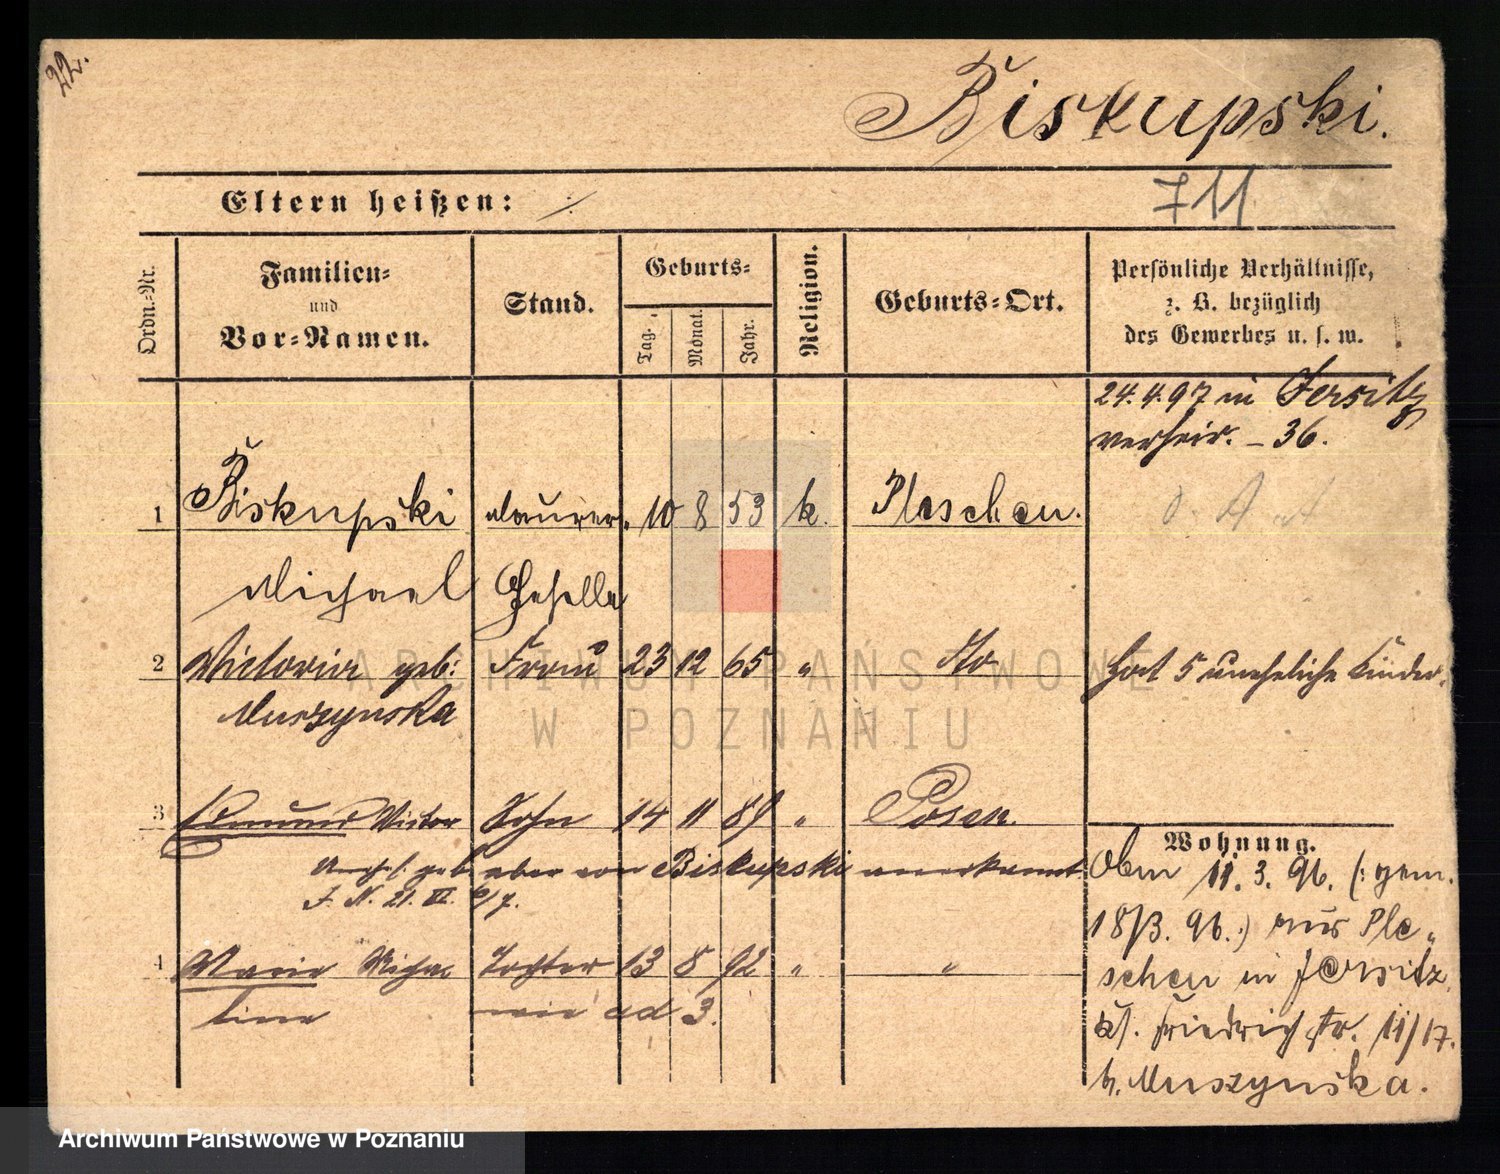 22.
Biskupski.
Eltern heißen: ./.
711
Ordn.-Nr.
Familien-
und
Vor-Namen.
Stand.
Geburts-
Tag.
Monat.
Jahr.
Religion.
Geburts-Ort.
Persönliche Verhältnisse,
z. B. bezüglich
des Gewerbes u. s. w.
24.4.97 in Jersitz
verheir. – 36.
1 Biskupski Maurer- 10 8 53 k. Pleschen.
Michael Geselle
2 Victoria geb: Frau 23 12 65 " hat 5 uneheliche Kinder.
Muszynska
3 Edmund Victor Sohn 14 11 89 " Posen.
geb. aber von Biskupski anerkannt
J. N. 21. IV.
4 Marie Micha- Tochter 13 8 92 " "
lina wie ad 3.
Wohnung.
11.3.96. (: gem.
18/3.96.:) aus Ple-
schen in Jersitz
Kl. Friedrichstr. 11/17.
b. Muszynska.
ARCHIWUM PAŃSTWOWE
W POZNANIU
Archiwum Państwowe w Poznaniu